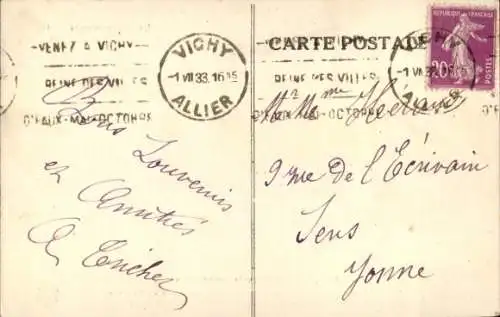 VENEZ A VICHY
REINE DES VILLES
D'EAUX-MAI-OCTOBRE
VICHY
-1 VII 33. 16 15
ALLIER
CARTE POSTALE
VENEZ A VICHY
REINE DES VILLES
D'EAUX-MAI-OCTOBRE
RÉPUBLIQUE FRANÇAISE
20c
POSTES
VICHY
-1 VII 33. 16 15
ALLIER
Bons Souvenirs
et Amitiés
Mr Mme
9 rue de l'Écrivain
Sens
Yonne